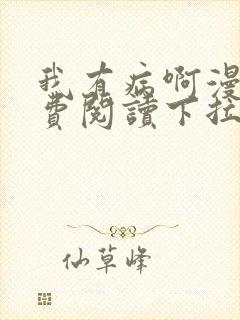 我有病啊漫
費閱讀下拉
仙草峰